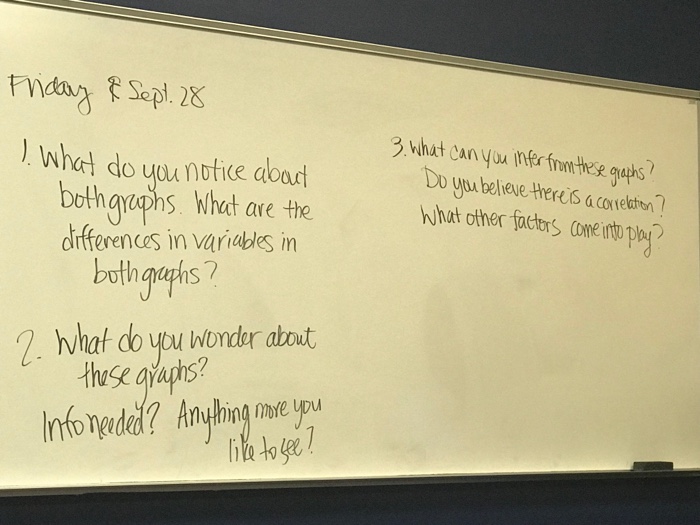 Friday & Sept. 28
1. What do you notice about
both graphs. What are the
differences in variables in
both graphs?
2. What do you wonder about
these graphs?
Info needed? Anything more you
like to see?
3. What can you infer from these graphs?
Do you believe there is a correlation?
What other factors come into play?